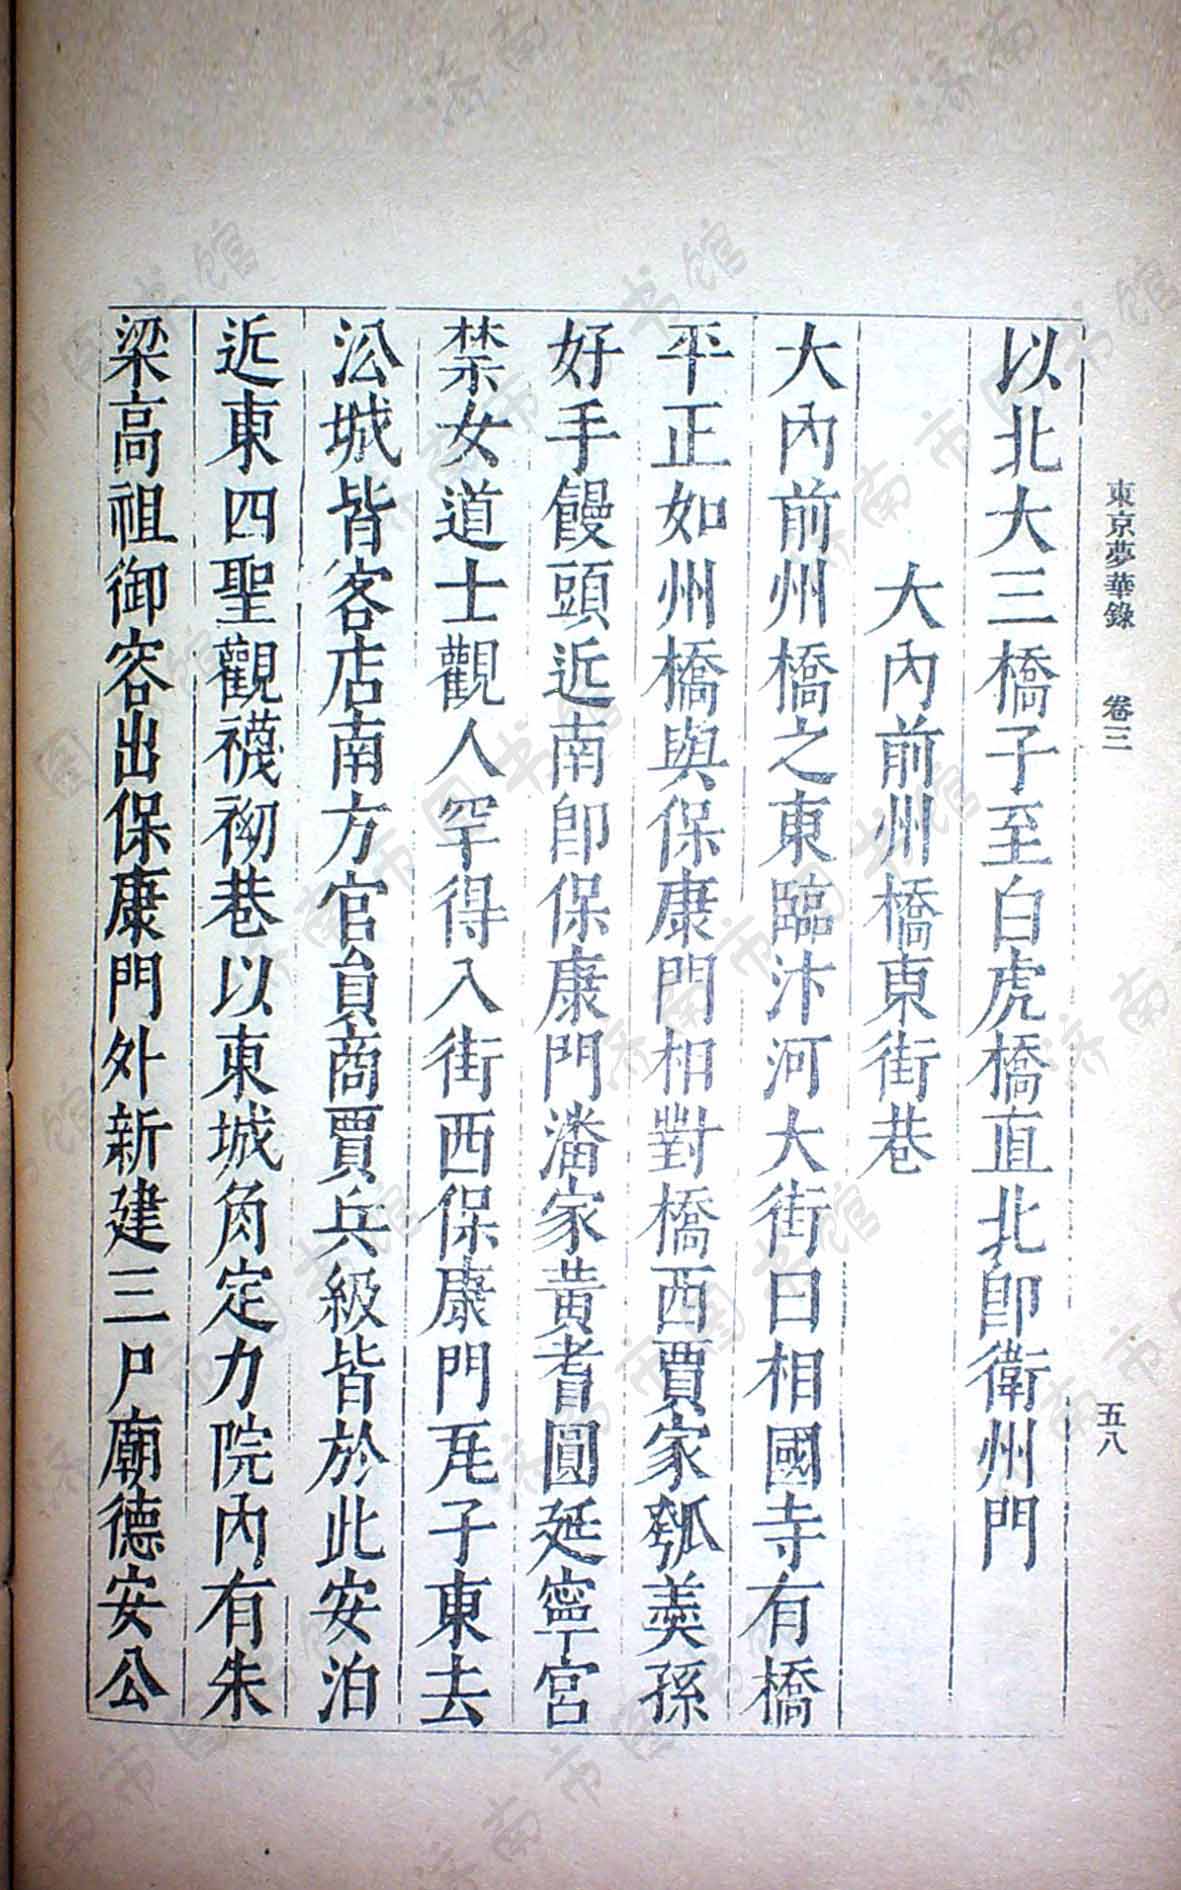 東京夢華錄 卷三 五八
以北大三橋子至白虎橋直北卽衛州門
大內前州橋東街巷
大內前州橋之東臨汴河大街曰相國寺有橋
平正如州橋與保康門相對橋西賈家瓠羹孫
好手饅頭近南卽保康門潘家黃耆圓延寧宮
禁女道士觀人罕得入街西保康門瓦子東去
沿城皆客店南方官員商賈兵級皆於此安泊
近東四聖觀襪袎巷以東城角定力院內有朱
梁高祖御容出保康門外新建三尸廟德安公
济南市图书馆